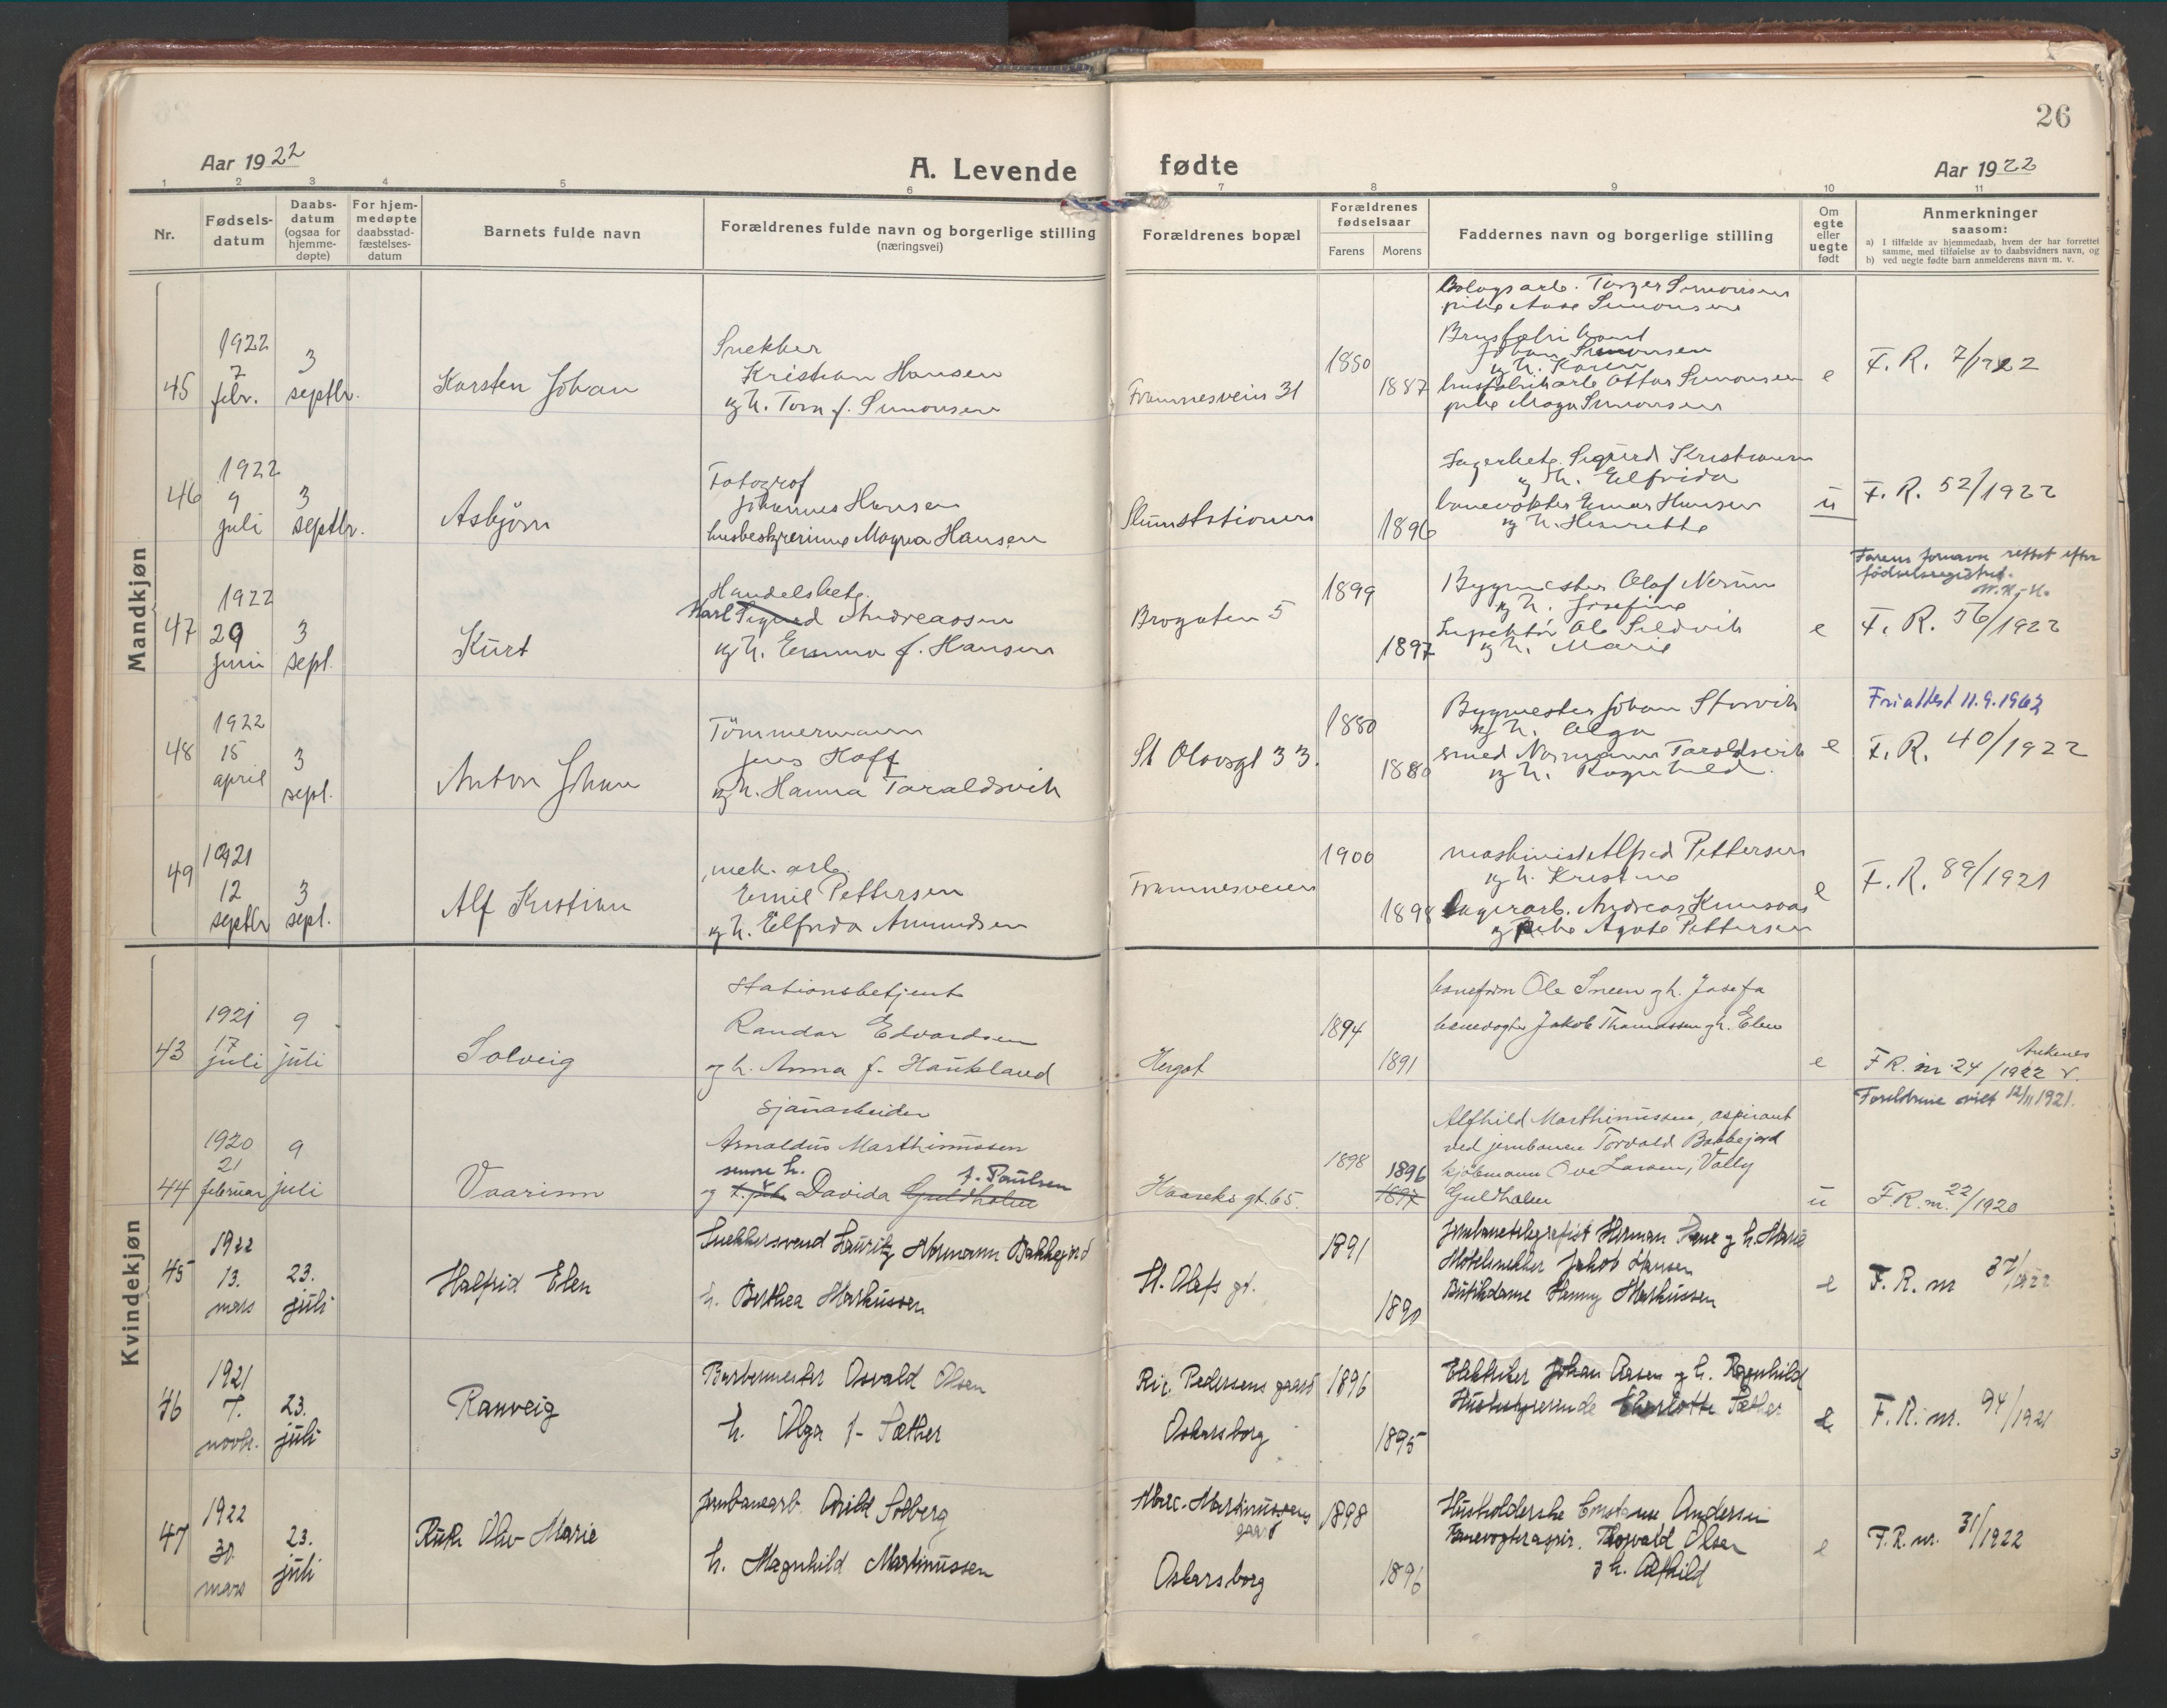 26
Aar 1922
A. Levende fødte
Aar 1922
1 2 3 4 5 6 7 8 9 10 11
Nr.
Fødsels-
datum
Daabs-
datum
(ogsaa for
hjemme-
døpte)
For hjem-
medøpte
daabsstad-
fæstelses-
datum
Barnets fulde navn
Forældrenes fulde navn og borgerlige stilling
(næringsvei)
Forældrenes bopæl
Forældrenes
fødselsaar
Farens
Morens
Faddernes navn og borgerlige stilling
Om
egte
eller
uegte
født
Anmerkninger
saasom:
a) I tilfælde av hjemmedaab, hvem der har forrettet
samme, med tilføielse av to daabsvidners navn, og
b) ved uegte fødte barn anmelderens navn m. v.
Mandkjøn
45
1922
7
febr.
3
septbr.
Karsten Johan
Snekker
Kristian Hansen
og h. Tora f. Simonsen
Framnesvein 31
1880
1887
Bolagsarb. Torger Simonsen
pike Aase Simonsen
Johan Simonsen
og h. Karen
brusfabrikarb. Ottar Simonsen
pike Magna Simonsen
e
F. R. 7/1922
46
1922
9
juli
3
septbr.
Asbjørn
Fotograf
Johannes Hansen
husbestyrerinne Magna Hansen
Slumstationen
1896
Lagerbetj. Sigurd Kristiansen
og h. Elfrida
banevokter Einar Hansen
og h. Henriette
u
F. R. 52/1922
47
1922
29
juni
3
sept.
Kurt
Handelsbetj.
Karl Sigurd Andreassen
og h. Emma f. Hansen
Brogaten 5
1899
1897
Bygmester Olaf Nerum
og h. Josefine
Inspektør Ole Sildvik
og h. Marie
e
Farens fornavn rettet efter
fødselsregistret.
F. R. 56/1922
48
1922
15
april
3
sept.
Anton Johan
Tømmermann
Jens Hoff
og h. Hanna Taraldsvik
St Olavsgt 33.
1880
1880
Bygmester Johan Storvik
og h. Olga
smed Normann Taraldsvik
og h. Ragnhild.
e
Friattest 11.9.1962
F. R. 40/1922
49
1921
12
septbr
3
sept.
Alf Kristian
mek. arb.
Emil Pettersen
og h. Elfrida Amundsen
Framnesveien
1900
1898
maskinist Alfred Pettersen
og h. Kristine
Lagerarb. Andreas
og pike Agate Pettersen
e
F. R. 89/1921
Kvindekjøn
43
1921
17
juli
9
juli
Solveig
Stationsbetjent
Randor Edvardsen
og h. Anna f. Haukland
Hergot
1894
1891
Ole Sneen og h. Josefa
banevogter Jakob Thomassen og h. Elen
e
Ankenes
F R. nr 24/1922
44
1920
21
februar
9
juli
Vaarinn
Sjauarbeider
Arnoldus Marthinussen
senere h. f. Paulsen
og Davida Guldholm
Haareks gt. 65.
1898
1896
1897
Alfhild Marthinussen, aspirant
ved jernbanen Torvald Bakkejord
kjøbmann Ove Larsen, Vally
Guldholm
u
Foreldrene viet 12/11 1921.
F R. nr. 22/1920
45
1922
13.
mars
23.
juli
Halfrid Elen
Snekkersvend Lauritz Normann Bakkejord
h. Berthea Markussen
St. Olafs gt.
1891
1890
Jernbanetelegrafist Herman Lane og h. Marie
Møbelsnekker Jakob Hansen
Butikdame Hanny Markussen
e
F. R. nr 37/1922
46
1921
7.
novbr.
23.
juli
Ranveig
Barbermester Osvald Olsen
h. Olga f. Sæther
Ric. Pedersens gaard
Oskarsborg
1896
1895
Elektriker Johan Aasen og h. Ragnhild
Husbestyrerinde Charlotte Sæther
e
F. R. nr. 94/1921
47
1922
30
mars
23.
juli
Ruth Oliv Marie
Jernbanearb. Arild Solberg
h. Magnhild Martinussen
Martinussens
gaard
Oskarsborg
1898
1896
Husholderske Constanse Andersen
Banevogteraspir. Thorvald Olsen
og h. Alfhild
e
F. R. nr. 31/1922